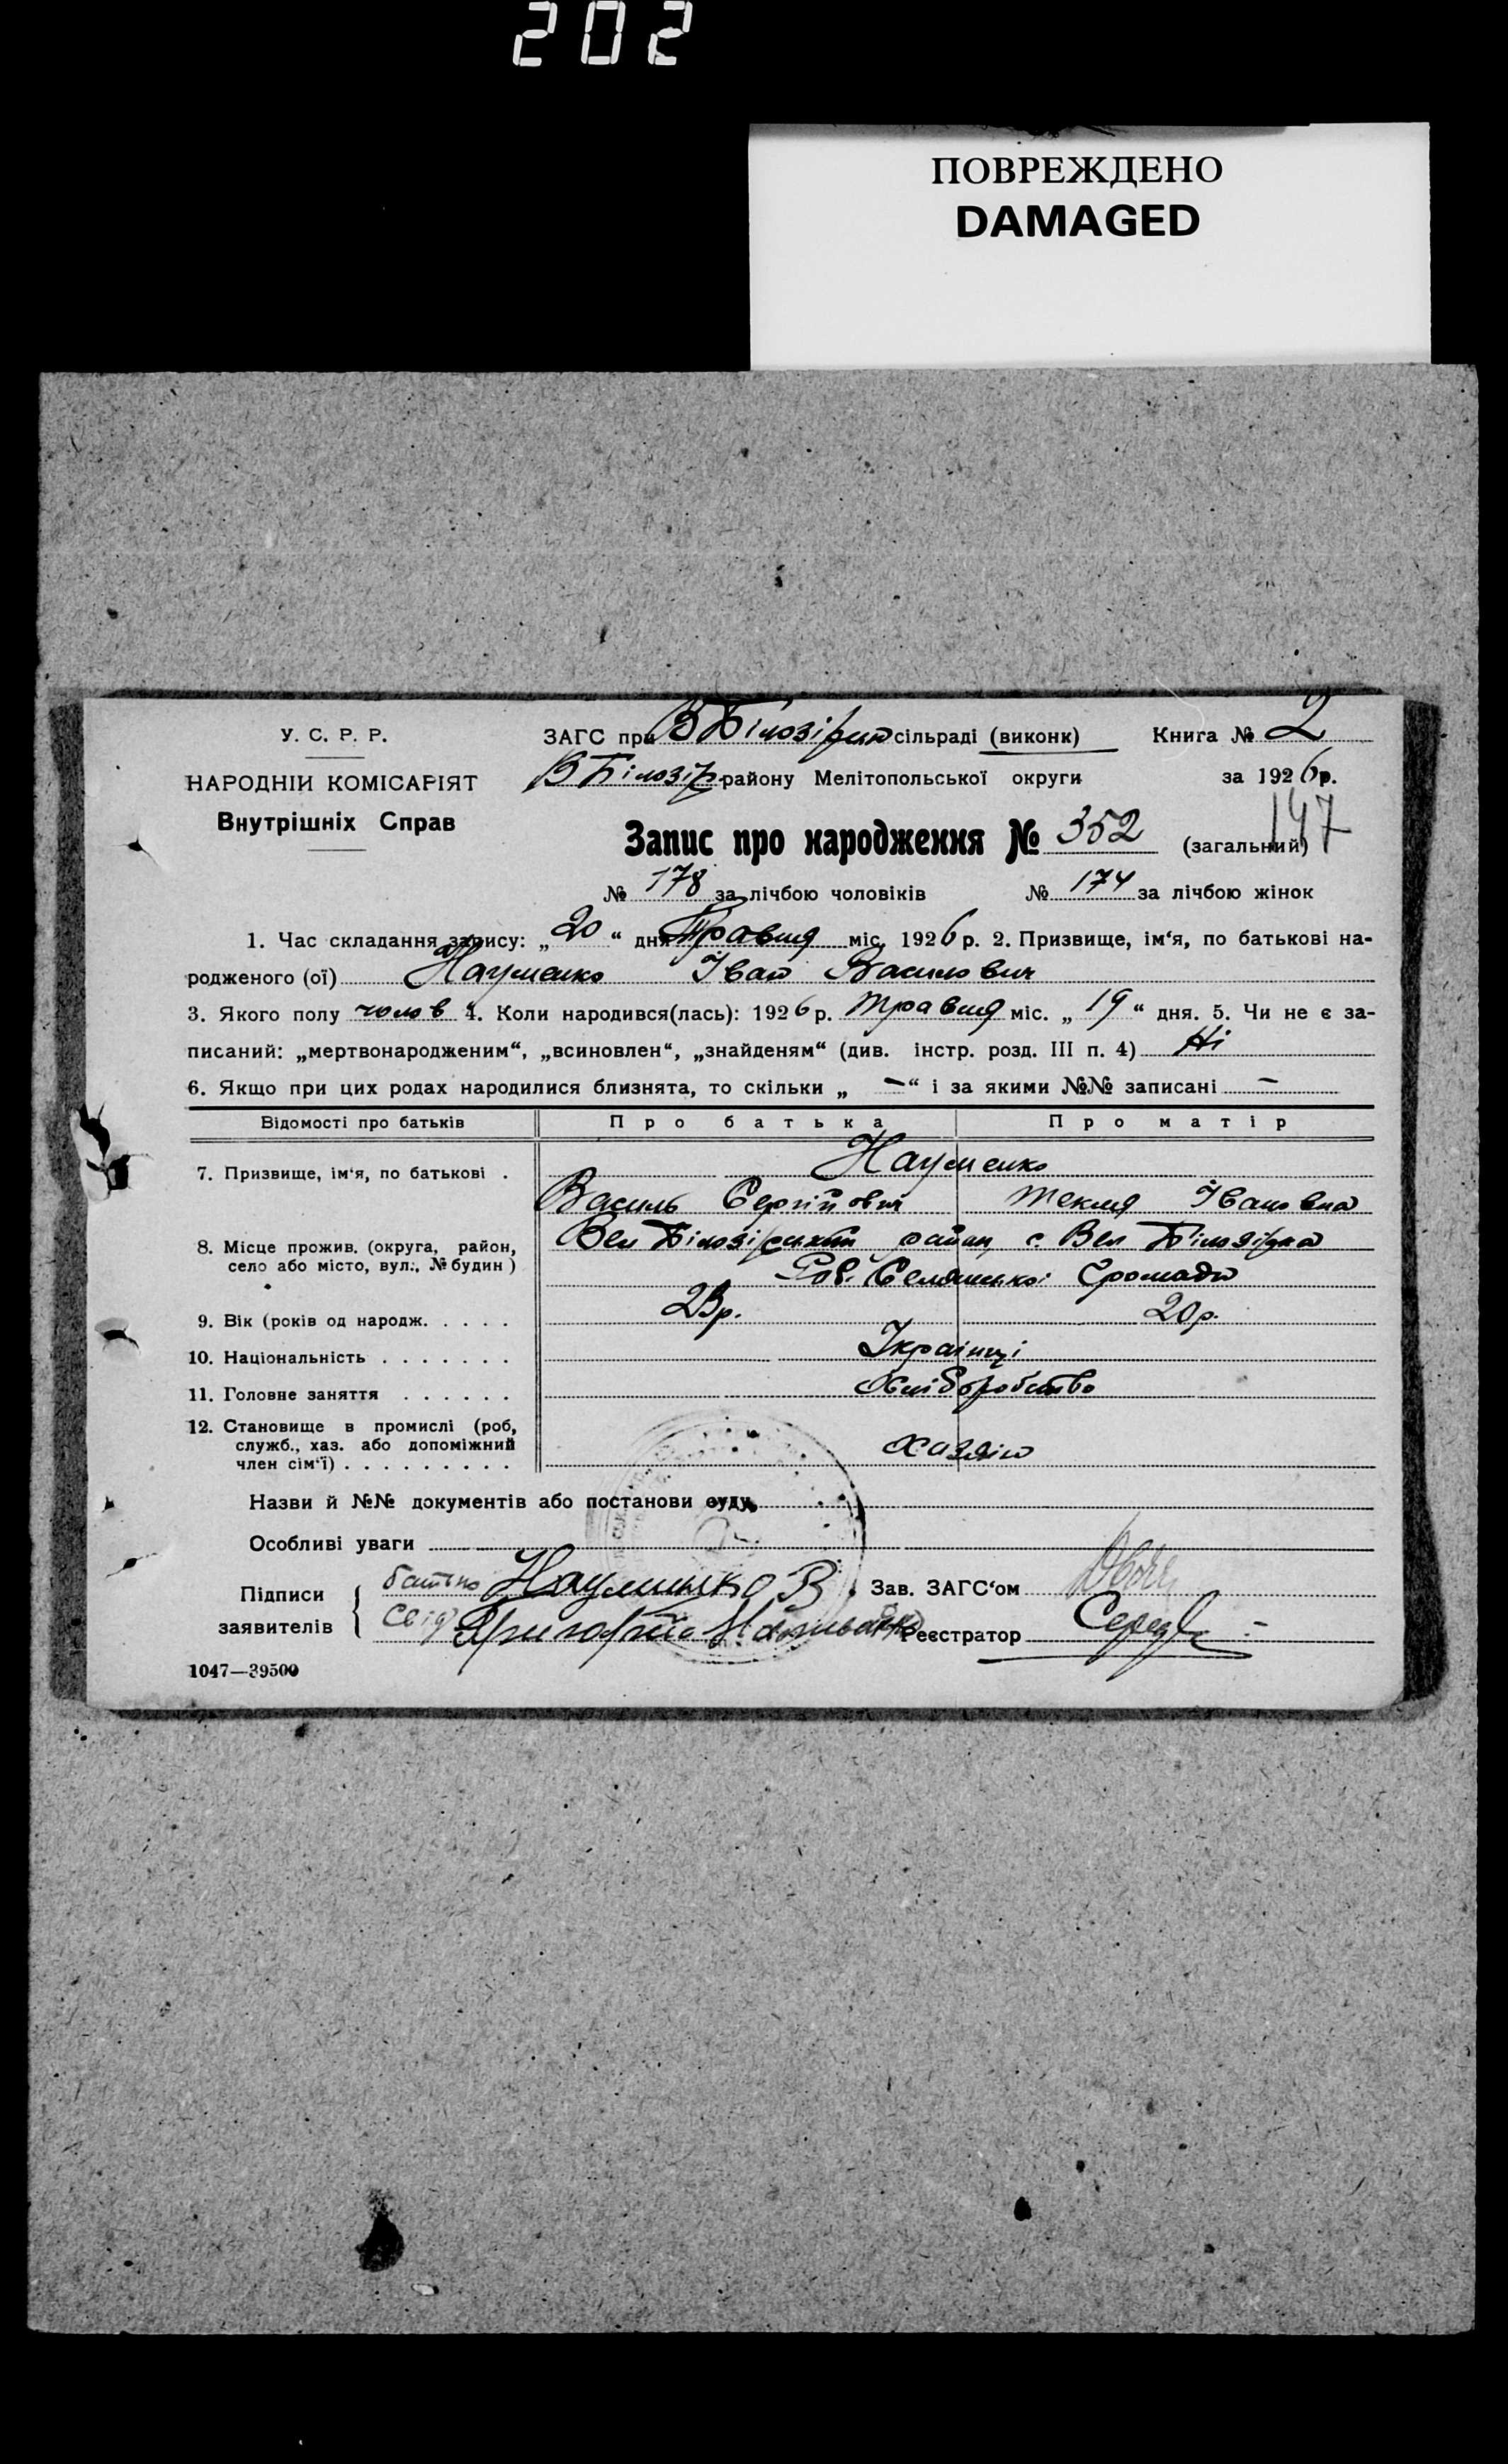 202
ПОВРЕЖДЕНО
DAMAGED
У. С. Р. Р.
НАРОДНІЙ КОМІСАРІЯТ
Внутрішніх Справ
ЗАГС при В Білозірск сільраді (виконк) Книга № 2
В Білозір. району Мелітопольської округи за 1926 р.
147
Запис про народження № 352 (загальний)
№ 178 за лічбою чоловіків № 174 за лічбою жінок
1. Час складання запису: „20“ дня Травня міс. 1926 р. 2. Призвище, ім‘я, по батькові на-
родженого (ої) Науменко Іван Василович
3. Якого полу чолов 4. Коли народився(лась): 1926 р. травня міс. „19“ дня. 5. Чи не є за-
писаний: „мертвонародженим“, „всиновлен“, „знайденям“ (див. інстр. розд. III п. 4) Ні
6. Якщо при цих родах народилися близнята, то скільки „ — “ і за якими №№ записані —
Відомості про батьків Про батька Про матір
7. Призвище, ім‘я, по батькові . Науменко
Василь Сергійович Текля Івановна
8. Місце прожив. (округа, район, село або місто, вул., № будин) Вел Білозірський район, с. Вел Білозірка
Громади
9. Вік (років од народж. . . . . 23 р. 20 р.
10. Національність . . . . . . . Українці
11. Головне заняття . . . . . . Хліборобство
12. Становище в промислі (роб, служб., хаз. або допоміжний член сім‘ї) . . . . . . . . . хазяін
Назви й №№ документів або постанови суду
Особливі уваги
Підписи заявителів батько Науминко В. Зав. ЗАГС‘ом
Свід Реєстратор
1047—39500